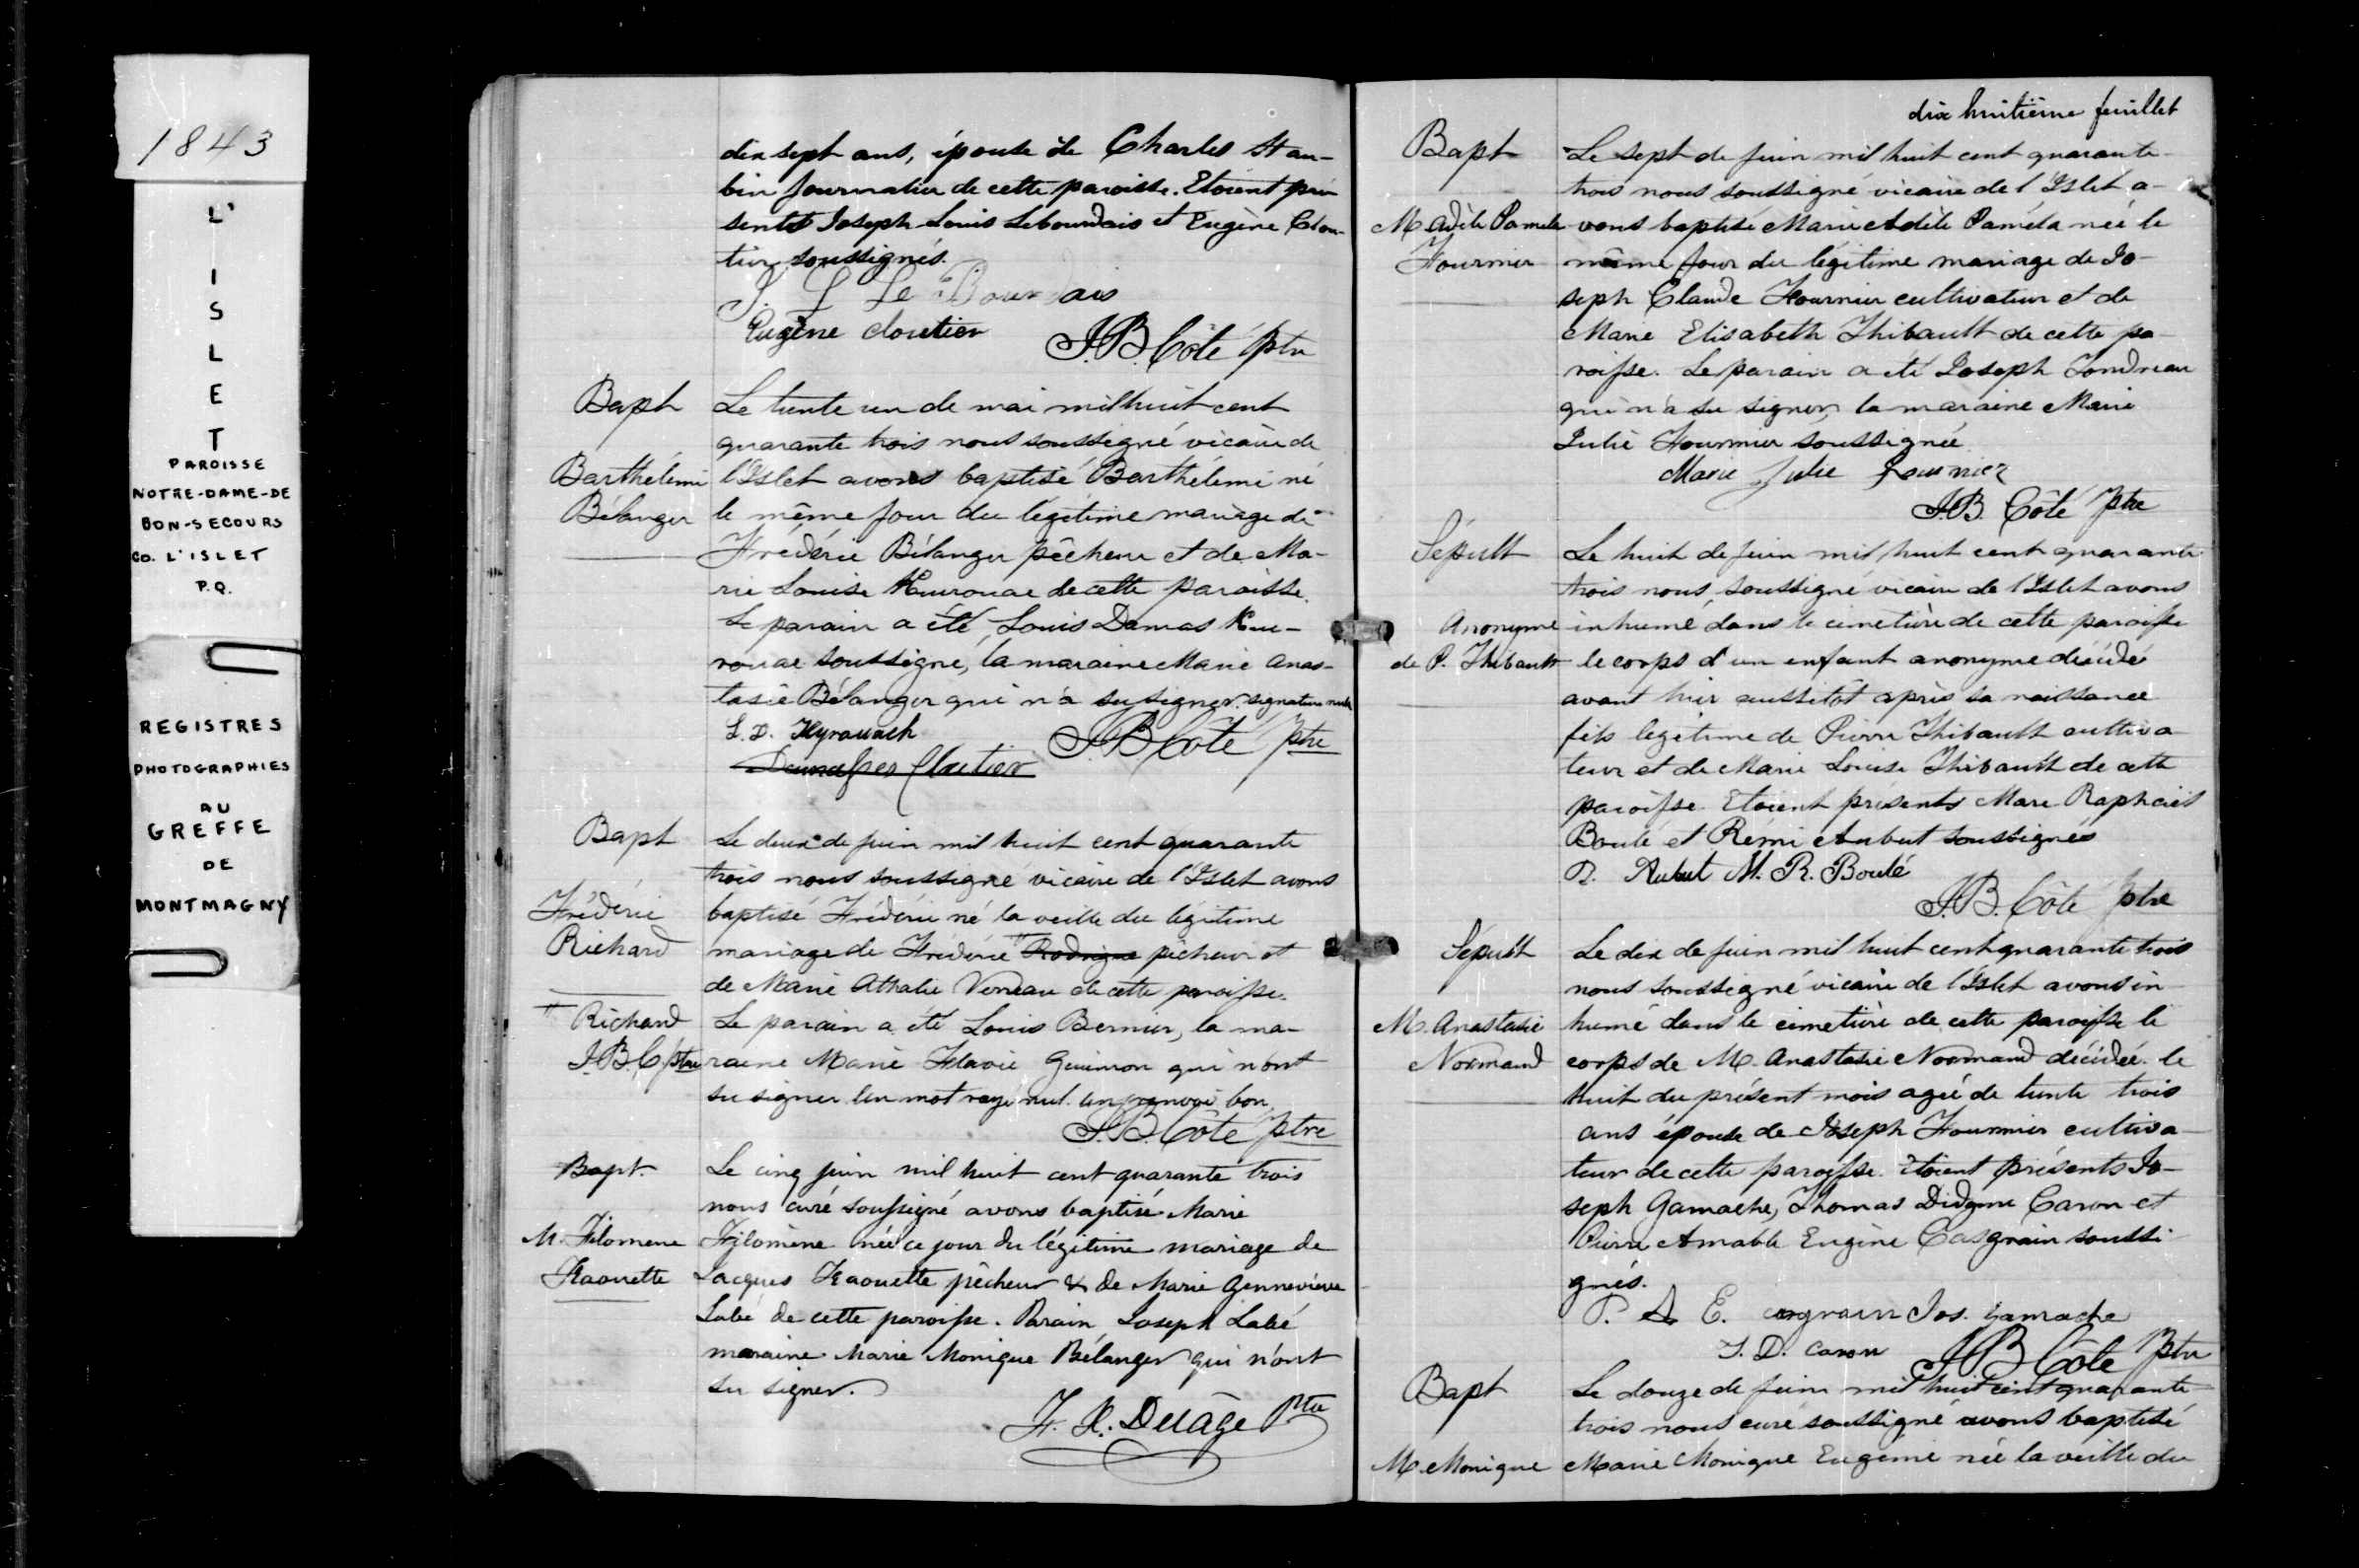 1843
L'
I
S
L
E
T
PAROISSE
NOTRE-DAME-DE
BON-SECOURS
CO. L'ISLET
P.Q.
REGISTRES
PHOTOGRAPHIES
AU
GREFFE
DE
MONTMAGNY
dix sept ans, épouse de Charles St au-
bin journalier de cette paroisse. Etoient pré
sents Joseph Louis Lebourdais et Eugène Clou-
tier soussignés.
J. L Le Bourdais
Eugène cloutier
J.B. Côté Ptre
Bapt
Barthélemi
Bélanger
Le trente un de mai mil huit cent
quarante trois nous soussigné vicaire de
l'Islet avons baptisé Barthélemi né
le même jour du légitime mariage de
Frédéric Bélanger pêcheur et de Ma-
rie Louise Kuerouac de cette paroisse.
Le parain a été Louis Damas Kue-
rouac soussigné, la maraine Marie Anas-
tasie Bélanger qui n'a su signer. signature nulle
L. D. Kyrouach
J.B. Côté Ptre
Cloutier
Bapt
Frédéric
Richard
# Richard
J.B.C ptre
Le deux de juin mil huit cent quarante
trois nous soussigné vicaire de l'Islet avons
baptisé Frédéric né la veille du légitime
mariage de Frédéric # Rodrigue pêcheur et
de Marie Athalie Verreau de cette paroisse.
Le parain a été Louis Bernier, la ma-
raine Marie Flavie Guimon qui n'ont
su signer Un mot rayé nul. un renvoi bon
J.B. Côté Ptre
Bapt.
M. Filomene
Kaouette
Le cinq juin mil huit cent quarante trois
nous curé soussigné avons baptisé Marie
Filomène née ce jour du légitime mariage de
Jacques Kaouette pêcheur & de Marie Gennevieve
Labé de cette paroisse. Parain Joseph Labé
maraine Marie Monique Bélanger qui n'ont
su signer.
F. X. Delâge Ptre
dix huitième feuillet
Bapt
M Adèle Pamela
Fournier
Le sept de juin mil huit cent quarante
trois nous soussigné vicaire de l'Islet a-
vons baptisé Marie Adèle Paméla née le
même jour du légitime mariage de Jo-
seph Claude Fournier cultivateur et de
Marie Elisabeth Thibault de cette pa-
roisse. Le parain a été Joseph Tondreau
qui n'a su signer, la maraine Marie
Julie Fournier soussignée.
Marie Julie Fournier
J.B. Côté Ptre
Sépult
Anonyme
de P. Thibault
Le huit de juin mil huit cent quarante
trois nous soussigné vicaire de l'Islet avons
inhumé dans le cimetière de cette paroisse
le corps d'un enfant anonyme décédé
avant hier aussitôt après sa naissance
fils légitime de Pierre Thibault cultiva
teur et de Marie Louise Thibault de cette
paroisse. Etoient présents Marc Raphaël
Boulé et Rémi Aubut soussignés
R. Aubut M. R. Boulé
J.B. Côté Ptre
Sépult
M. Anastasie
Normand
Le dix de juin mil huit cent quarante trois
nous soussigné vicaire de l'Islet avons in
humé dans le cimetière de cette paroisse le
corps de M. Anastasie Normand décédée le
huit du présent mois agée de trente trois
ans épouse de Joseph Fournier cultiva
teur de cette paroisse. Etoient présents Jo-
seph Gamache, Thomas Didyme Caron et
Pierre Amable Eugène Casgrain soussi
gnés.
P. A E. casgrain Jos. Gamache
T. D. Caron J.B. Côté Ptre
Bapt
M. Monique
Le douze de juin mil huit cent quarante
trois nous curé soussigné avons baptisé
Marie Monique Eugénie née la veille du